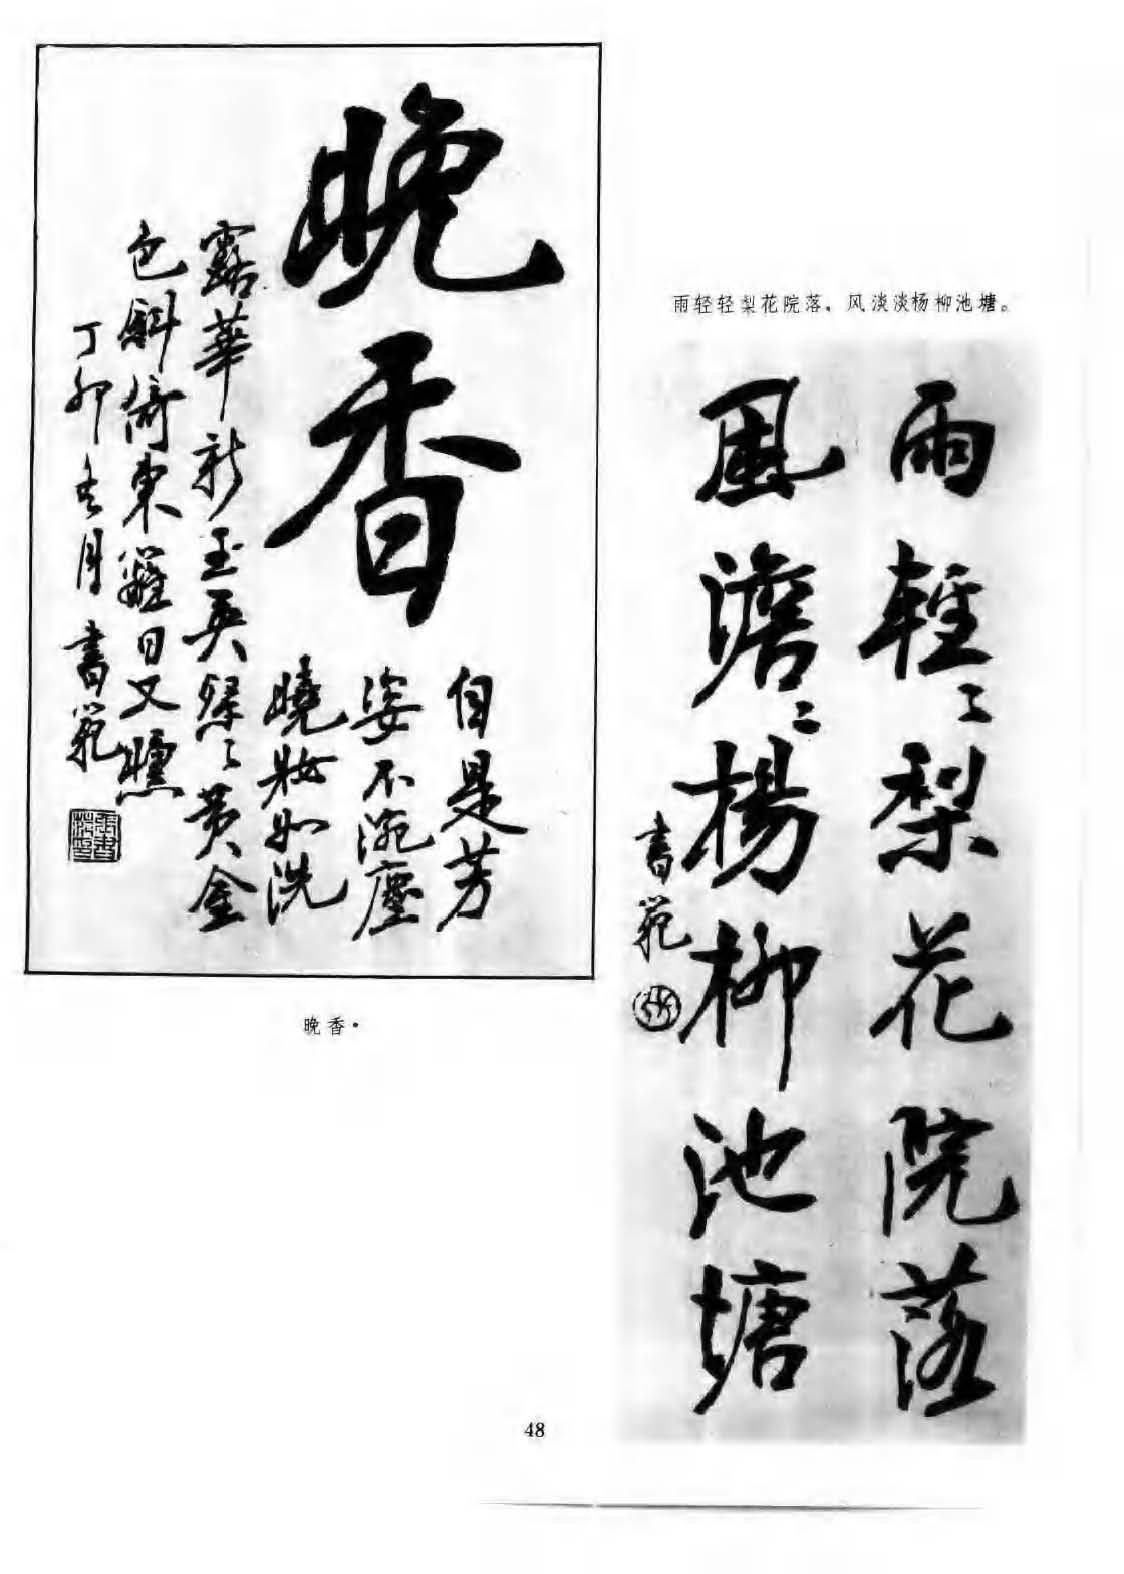 晚香
自是芳
姿不涴塵
曉妝如洗
露華新玉英繰〻黄金
色斜倚東籬日又曛
丁卯冬月書範
晚香·
雨轻轻梨花院落，风淡淡杨柳池塘。
雨輕〻梨花院落
風澹〻楊柳池塘
書範
48